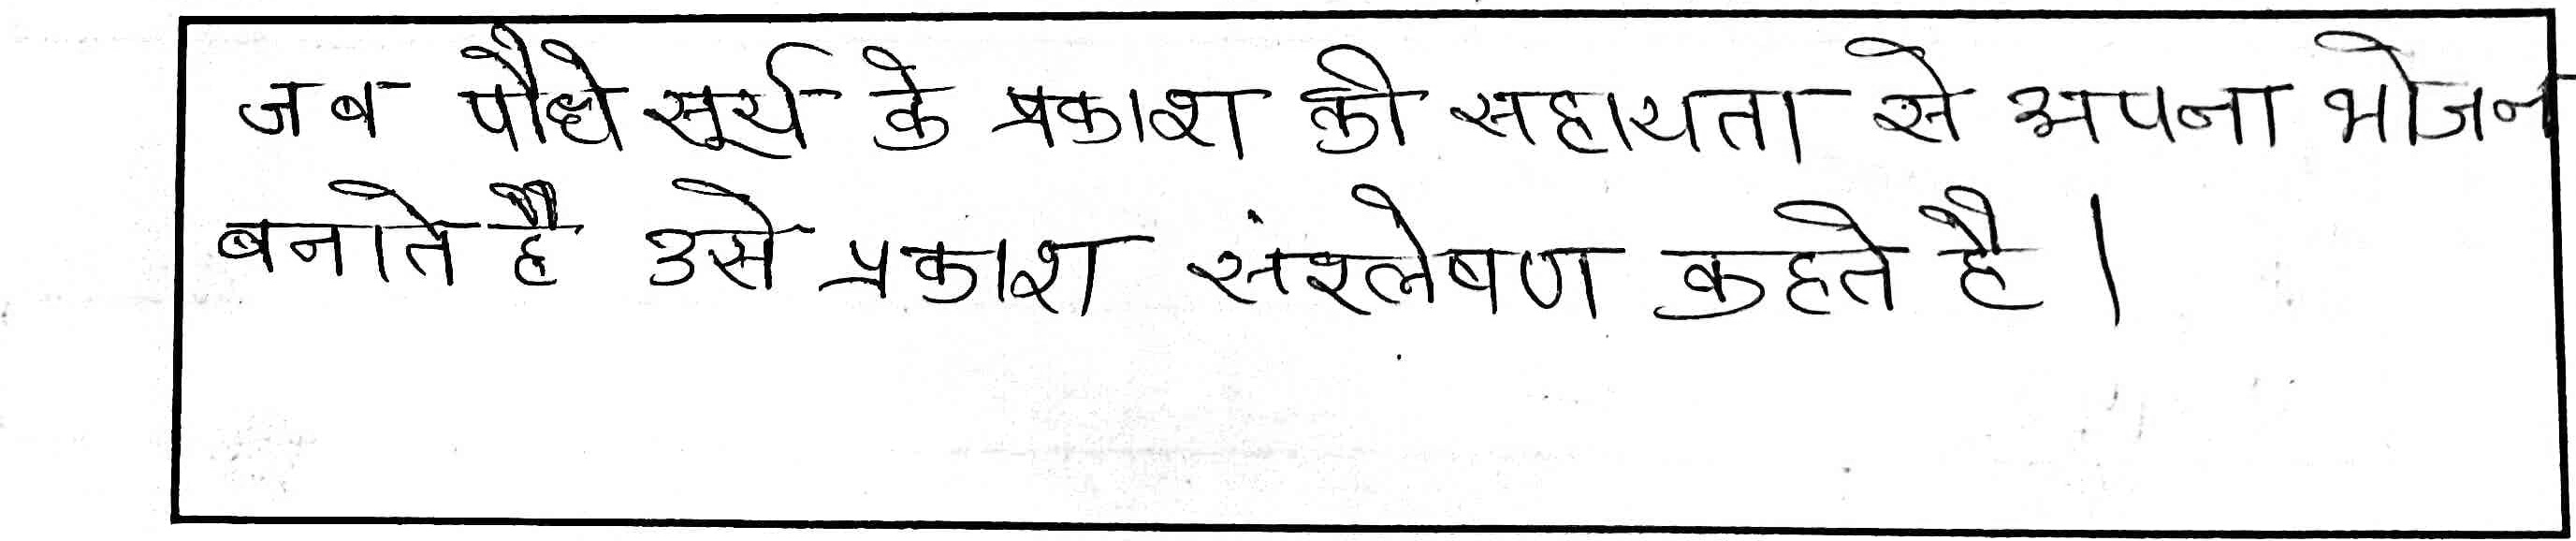 जब पौधे सूर्य के प्रकाश की सहायता से अपना भोजन
बनाते है उसे प्रकाश संश्लेषण कहते है।